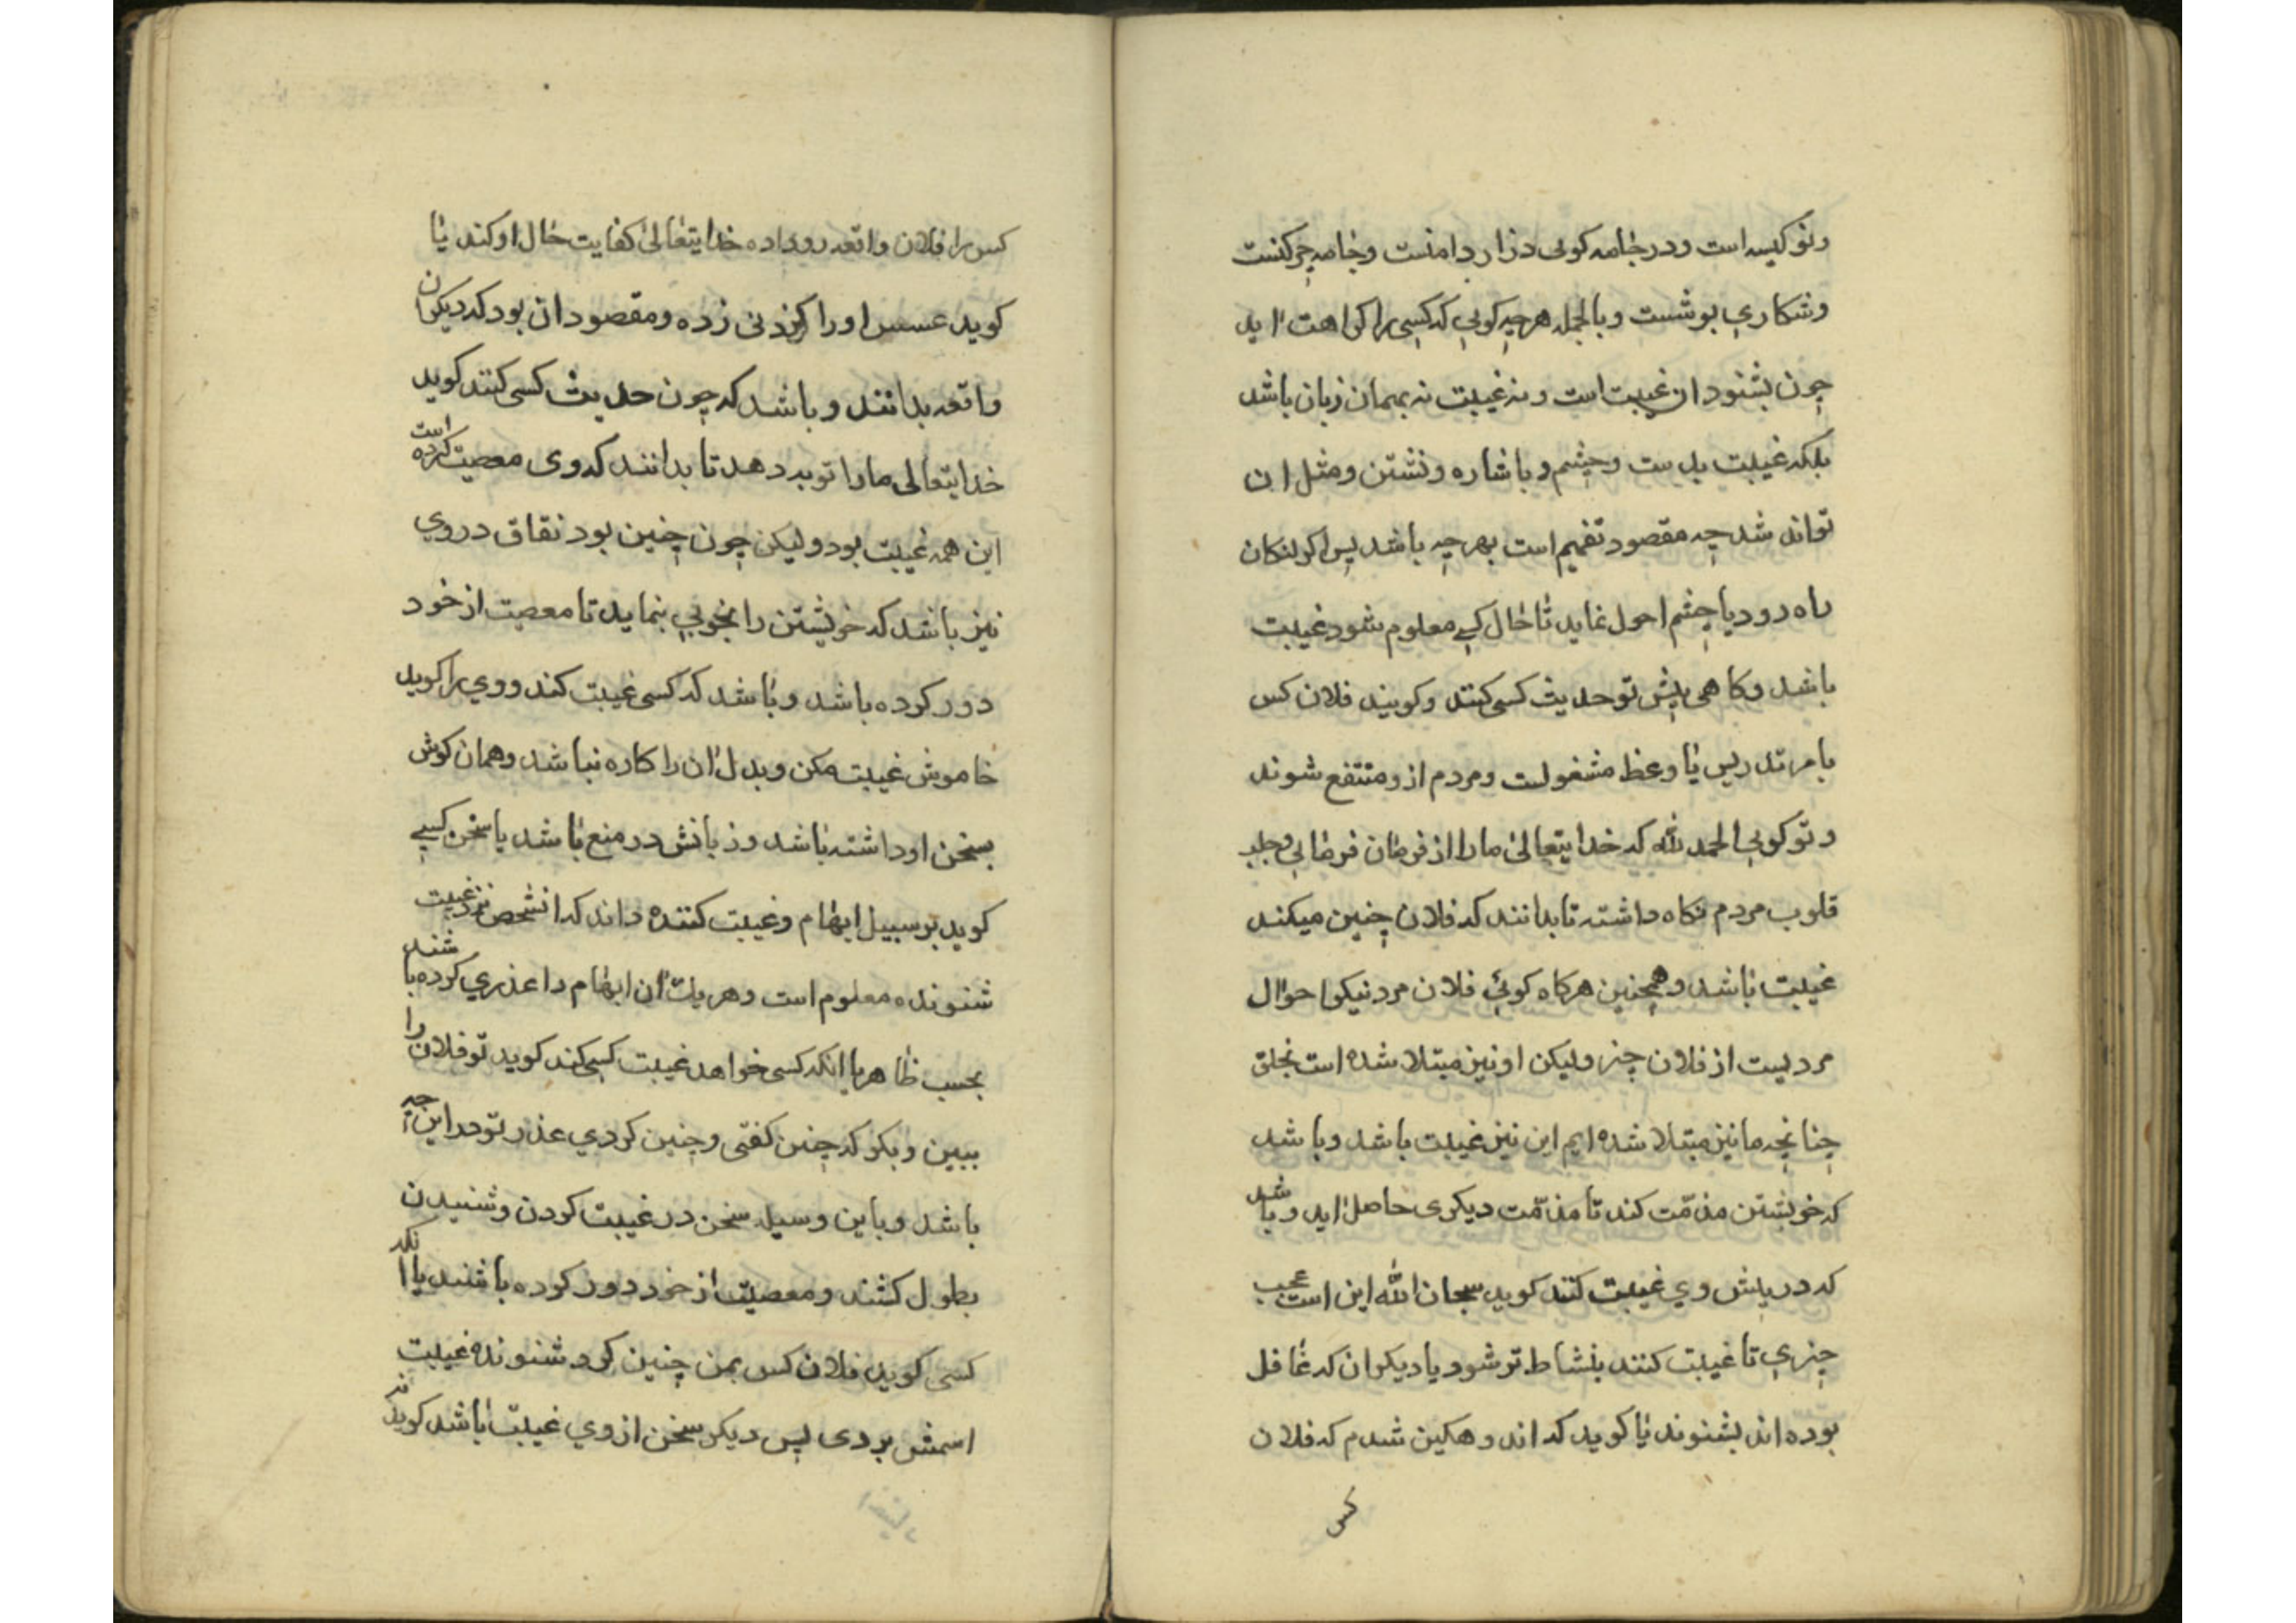 ونو کیسه است ودر جامه کوبی دراز دامنست وجامه چرکنست
وشکاری پوشست وبالجمله هرچه کوبی که کسی را کراهت اید
چون بشنود ان غیبت است ونه غیبت نه بهمان زبان باشد
بلکه غیبت بدست وچشم وباشاره ونشتن ومثل ان
تواند شد چه مقصود تفهیم است بهرچه باشد پس اکر لنکان
راه رود یا چشم احول نماید تا حال کسی معلوم شود غیبت
باشد وکاهی پیش تو حدیث کسی کنند وکویند فلان کس
بامر تدریس یا وعظ مشغولست ومردم ازو منتفع شوند
وتو کوبی الحمد لله که خدایتعالی ما را از فرمان فرمایی وجلب
قلوب مردم نکاه داشته تا بدانند که فلان چنین میکند
غیبت باشد وهمچنین هرکاه کوئی فلان مرد نیکو احوال
مردیست از فلان چیز ولیکن او نیز مبتلا شده است بخلق
چنانچه ما نیز مبتلا شده ایم این نیز غیبت باشد وباشد
که خویشتن مذمّت کند تا مذمّت دیکری حاصل اید وباشد
که در پیش وی غیبت کنند کوید سبحان الله این است عجب
چیزی تا غیبت کننده بنشاط تر شود یا دیکران که غافل
بوده اند بشنوند یا کوید که اندوهکین شدم که فلان
کس
کس را فلان واقعه روداده خدایتعالی کفایت حال او کند یا
کوید عسس او را کردنی زده ومقصود ان بود که دیکران
واقعه بدانند وباشد که چون حدیث کسی کنند کوید
خدایتعالی ما را توبه دهد تا بدانند که وی معصیت کرده است
این همه غیبت بود ولیکن چون چنین بود نفاق در وی
نیز باشد که خویشتن را بخوبی بنماید تا معصیت از خود
دور کرده باشد وباشد که کسی غیبت کند ووی را کوید
خاموش غیبت مکن وبدل ان را کاره نباشد وهمان کوش
بسخن او داشته باشد وزبانش در منع باشد یا سخن کسی
کوید بر سبیل ابهام وغیبت کننده داند که انشخص نزد غیبت
شنونده معلوم است وهریک ان ابهام را عذری کرده باشند
بحسب ظاهر یا انکه کسی خواهد غیبت کسی کند کوید تو فلان را
ببین وبکو که چنین کفتی وچنین کردی عذر تو در این چه
باشد وباین وسیله سخن در غیبت کردن وشنیدن
بطول کشند ومعصیت از خود دور کرده باشند یا انکه
کسی کوید فلان کس بمن چنین کرد شنونده غیبت
اسمش بردی پس دیکر سخن از وی غیبت باشد کوینده